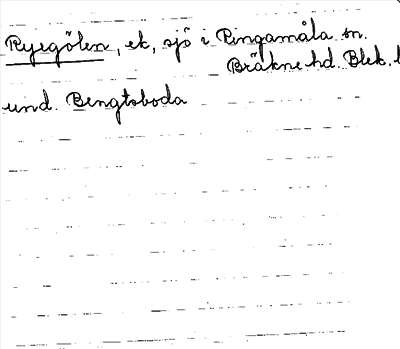 Ryegölen, ek, sjö i Ringamåla sn.
Bräkne hd. Blek. l
und. Bengtsboda